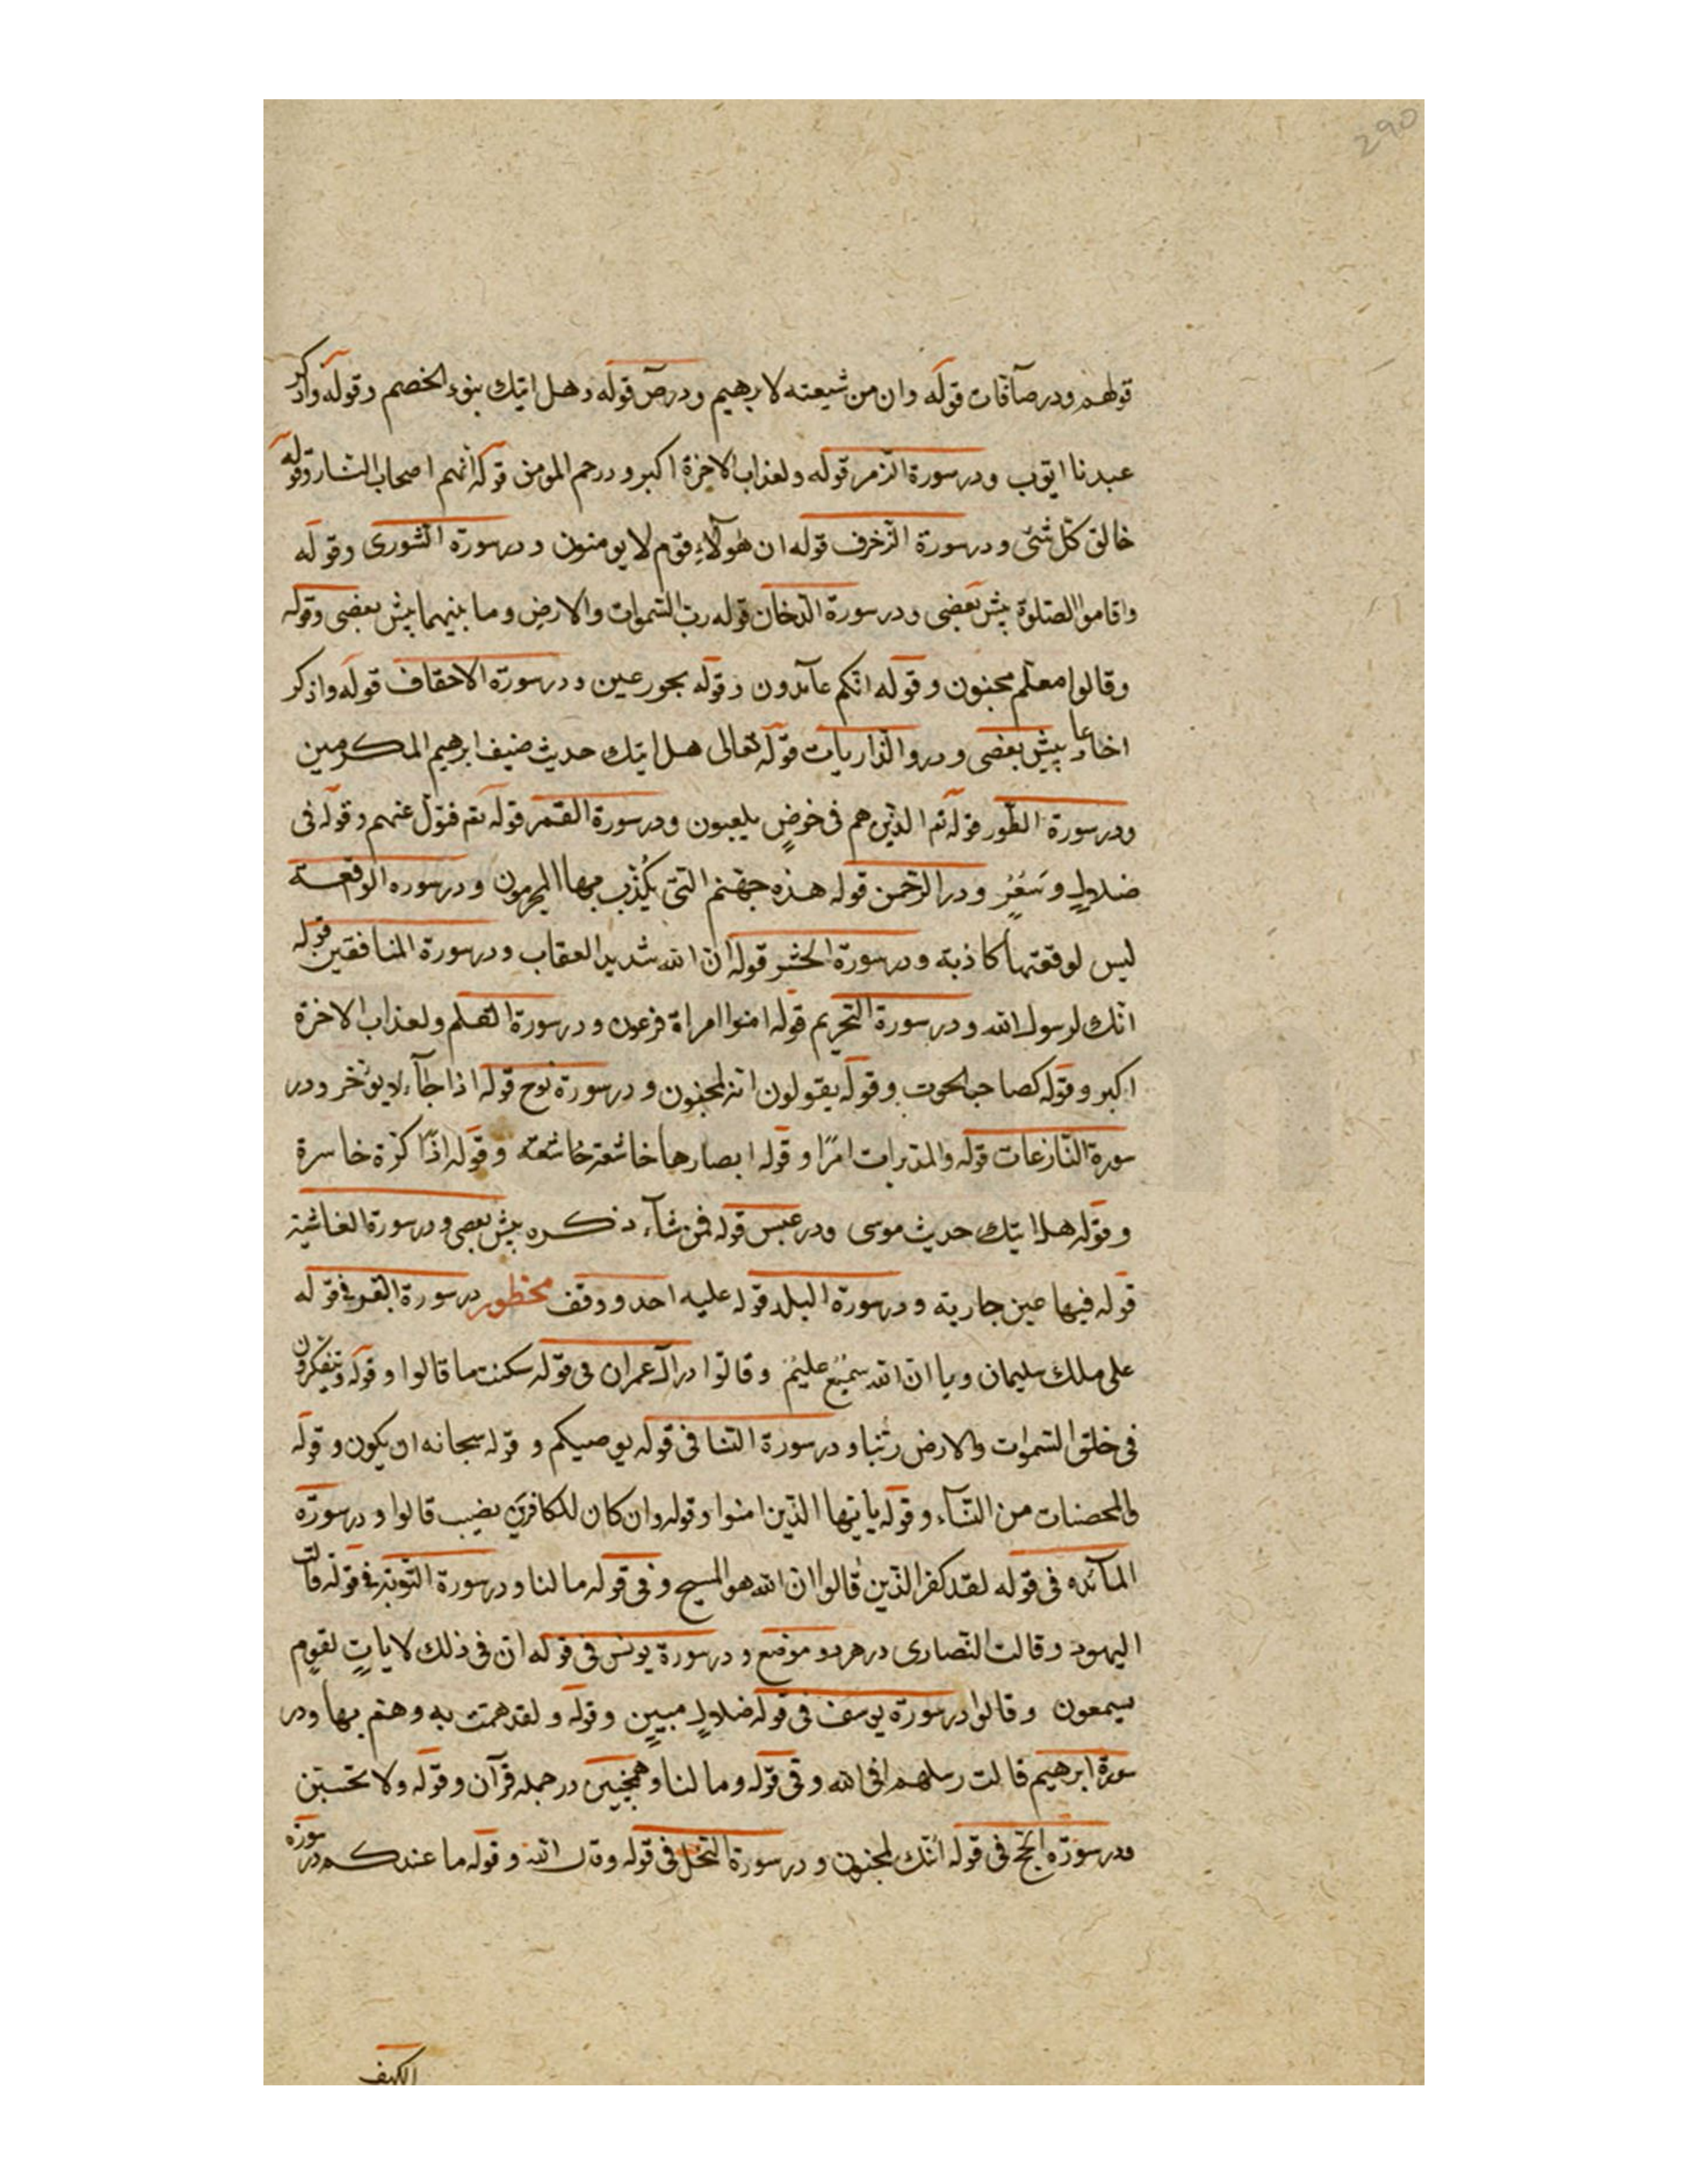 290
قولهم ودر صآفات قوله وان من شيعته لابرهيم ودرص قوله وهل اتيك بنوء الخصم وقوله واذكر
عبدنا ايوب ودر سورة الزمر قوله ولعذاب الاخرة اكبر ودر حم المومن قوله انهم اصحاب النار وقوله
خالق كل شئ ودر سورة الزخرف قوله ان هولآء قوم لا يومنون ودر سورة الشورى وقوله
واقاموا الصلوة پيش بعضى ودر سورة الدخان قوله رب السموات والارض وما بينهما پيش بعضى وقوله
وقالوا معلم مجنون وقوله انكم عآئدون وقوله بحور عين ودر سورة الاحقاف قوله واذكر
اخا عاد پيش بعضى ودر والذاريات قوله تعالى هل اتيك حديث ضيف ابرهيم المكرمين
ودر سورة الطور قوله ثم الذين هم فى خوضٍ يلعبون ودر سورة القمر قوله ثم فتول عنهم وقوله فى
ضلالٍ وسعرٍ ودر الرحمن قوله هذه جهنم التى يُكذب بها المجرمون ودر سوره الوقعة
ليس لوقعتها كاذبة ودر سورة الحشر قوله ان الله شديد العقاب ودر سورة المنافقين قوله
انك لرسول الله ودر سورة التحريم قوله امنوا امراة فرعون ودر سورة القلم ولعذاب الاخرة
اكبر وقوله كصاحب الحوت وقوله يقولون انه لمجنون ودر سورة نوح قوله اذا جآء لا يؤخر ودر
سورة النازعات قوله والمدبرات امرًا وقوله ابصارها خاشعة خاشعة وقوله اذًا كرة خاسرة
وقوله هل اتيك حديث موسى ودر عبس قوله فمن شآء ذكره پيش بعضى ودر سورة الغاشية
قوله فيها عين جارية ودر سورة البلد قوله عليه احد ووقف محظور در سورة البقرة فى قوله
على ملك سليمان ويا ان الله سميعٌ عليمٌ وقالوا در آل عمران فى قوله سكنت ما قالوا وقوله ويتفكرون
فى خلق السموات والارض ربنا ودر سورة النسا فى قوله يوصيكم وقوله سبحانه ان يكون وقوله
والمحصنات من النسآء وقوله يا ايها الذين امنوا وقوله وان كان للكافرين نصيب قالوا ودر سورة
المآئده فى قوله لقد كفر الذين قالوا ان الله هو المسيح و فى قوله ما لنا ودر سورة التوبة فى قوله قالت
اليهود وقالت النصارى در هر دو موضع ودر سورة يونس فى قوله ان فى ذلك لاياتٍ لقومٍ
يسمعون وقالوا در سورة يوسف فى قوله ضلالٍ مبينٍ وقوله ولقد همت به وهم بها ودر
سورة ابرهيم قالت رسلهم افى الله وفى قوله وما لنا وهمچنين در جمله قرآن وقوله ولا تحسبن
ودر سورة الحج فى قوله انك لمجنون ودر سورة النحل فى قوله وقال الله وقوله ما عندكم در سورة
الكهف